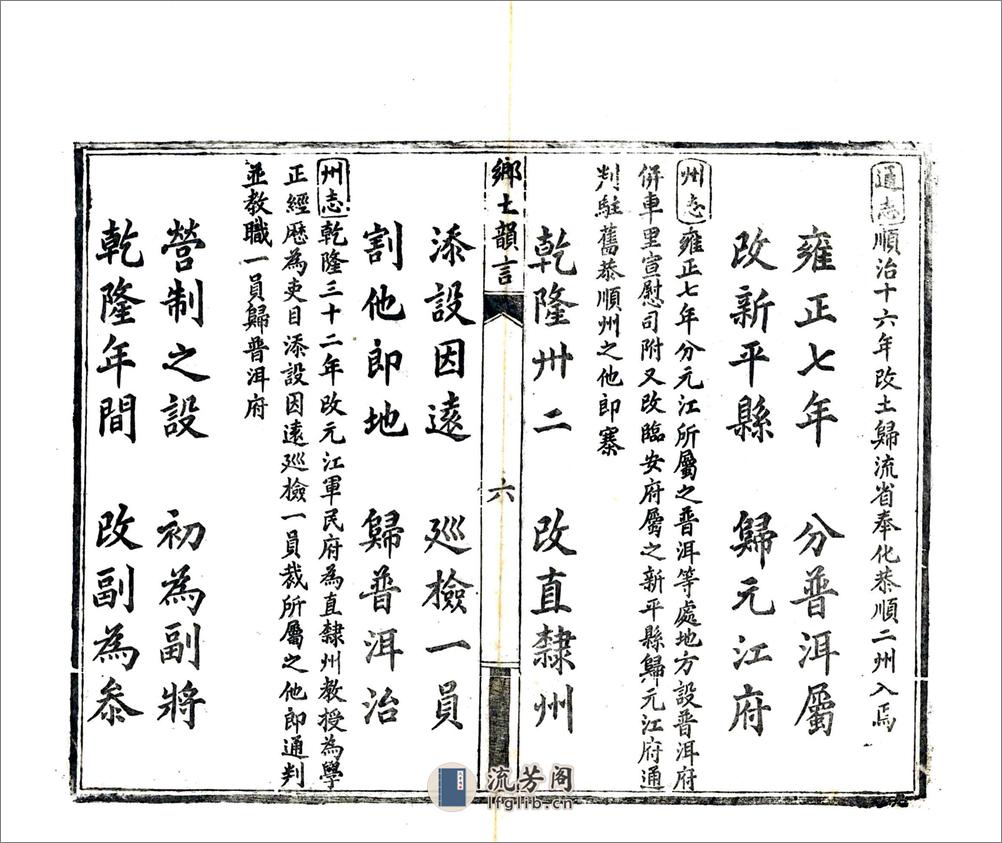 通志順治十六年改土歸流省奉化恭順二州入焉
雍正七年 分普洱屬
改新平縣 歸元江府
州志雍正七年分元江所屬之普洱等處地方設普洱府
併車里宣慰司附又改臨安府屬之新平縣歸元江府通
判駐舊恭順州之他郎寨
乾隆卅二 改直隸州
鄉土韻言
六
添設因遠 巡檢一員
割他郎地 歸普洱治
州志乾隆三十二年改元江軍民府為直隸州教授為學
正經歷為吏目添設因遠巡檢一員裁所屬之他郎通判
並教職一員歸普洱府
營制之設 初為副將
乾隆年間 改副為叅
流芳阁
lfglib.cn